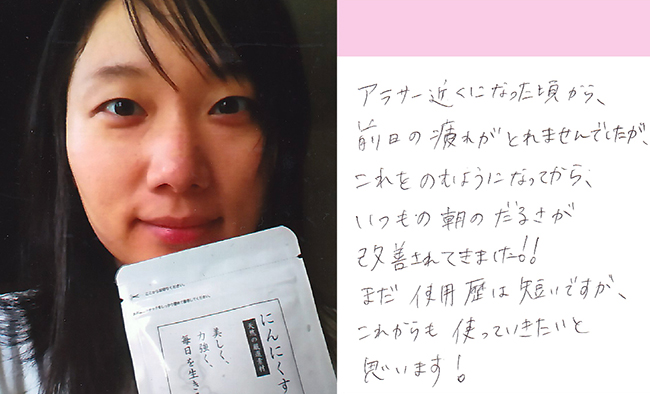 アラサー近くになった頃から、
前日の疲れがとれませんでしたが、
これをのむようになってから、
いつもの朝のだるさが
改善されてきました!!
まだ使用歴は短いですが、
これからも使っていきたいと
思います!
にんにくす
天然の厳選素材
美しく、
力強く、
毎日を生き